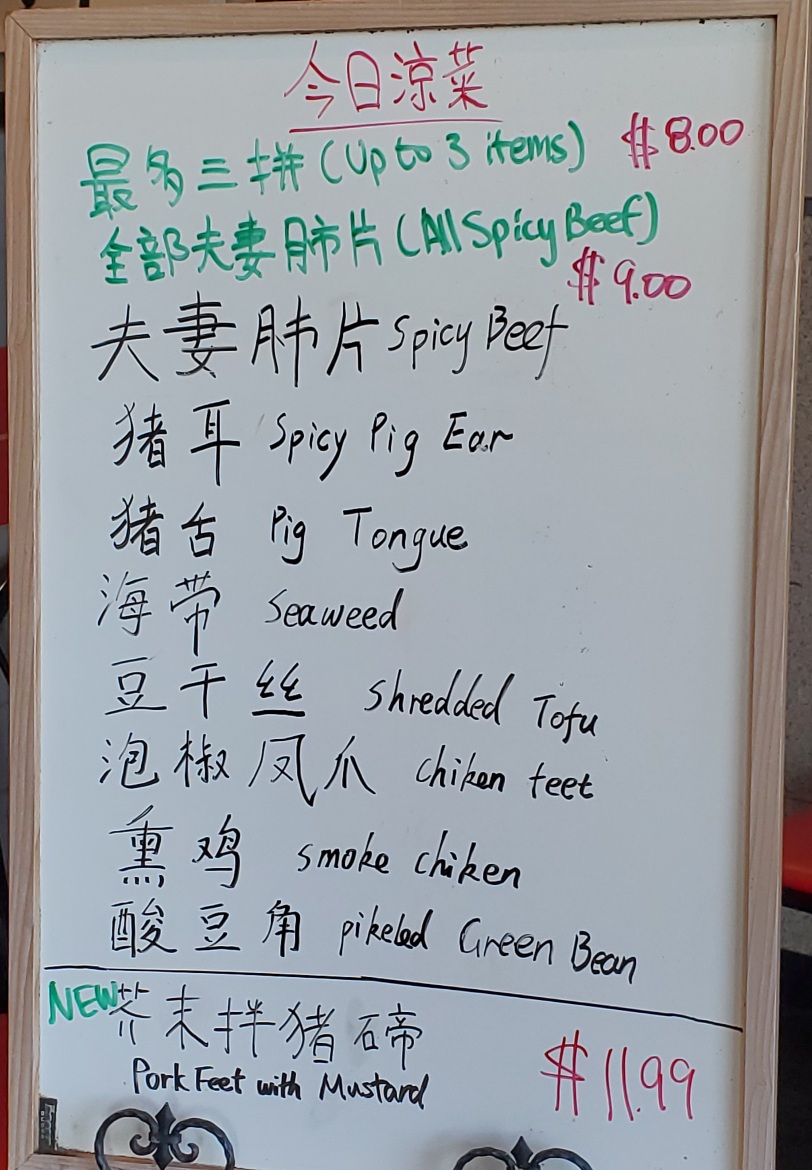 今日凉菜
最多三拼 (Up to 3 items) $8.00
全部夫妻肺片 (All Spicy Beef)
$9.00
夫妻肺片 Spicy Beef
猪耳 Spicy Pig Ear
猪舌 Pig Tongue
海带 Seaweed
豆干丝 Shredded Tofu
泡椒凤爪 chiken feet
熏鸡 smoke chiken
酸豆角 pikeled Green Bean
NEW 芥末拌猪碲
Pork Feet with Mustard $11.99